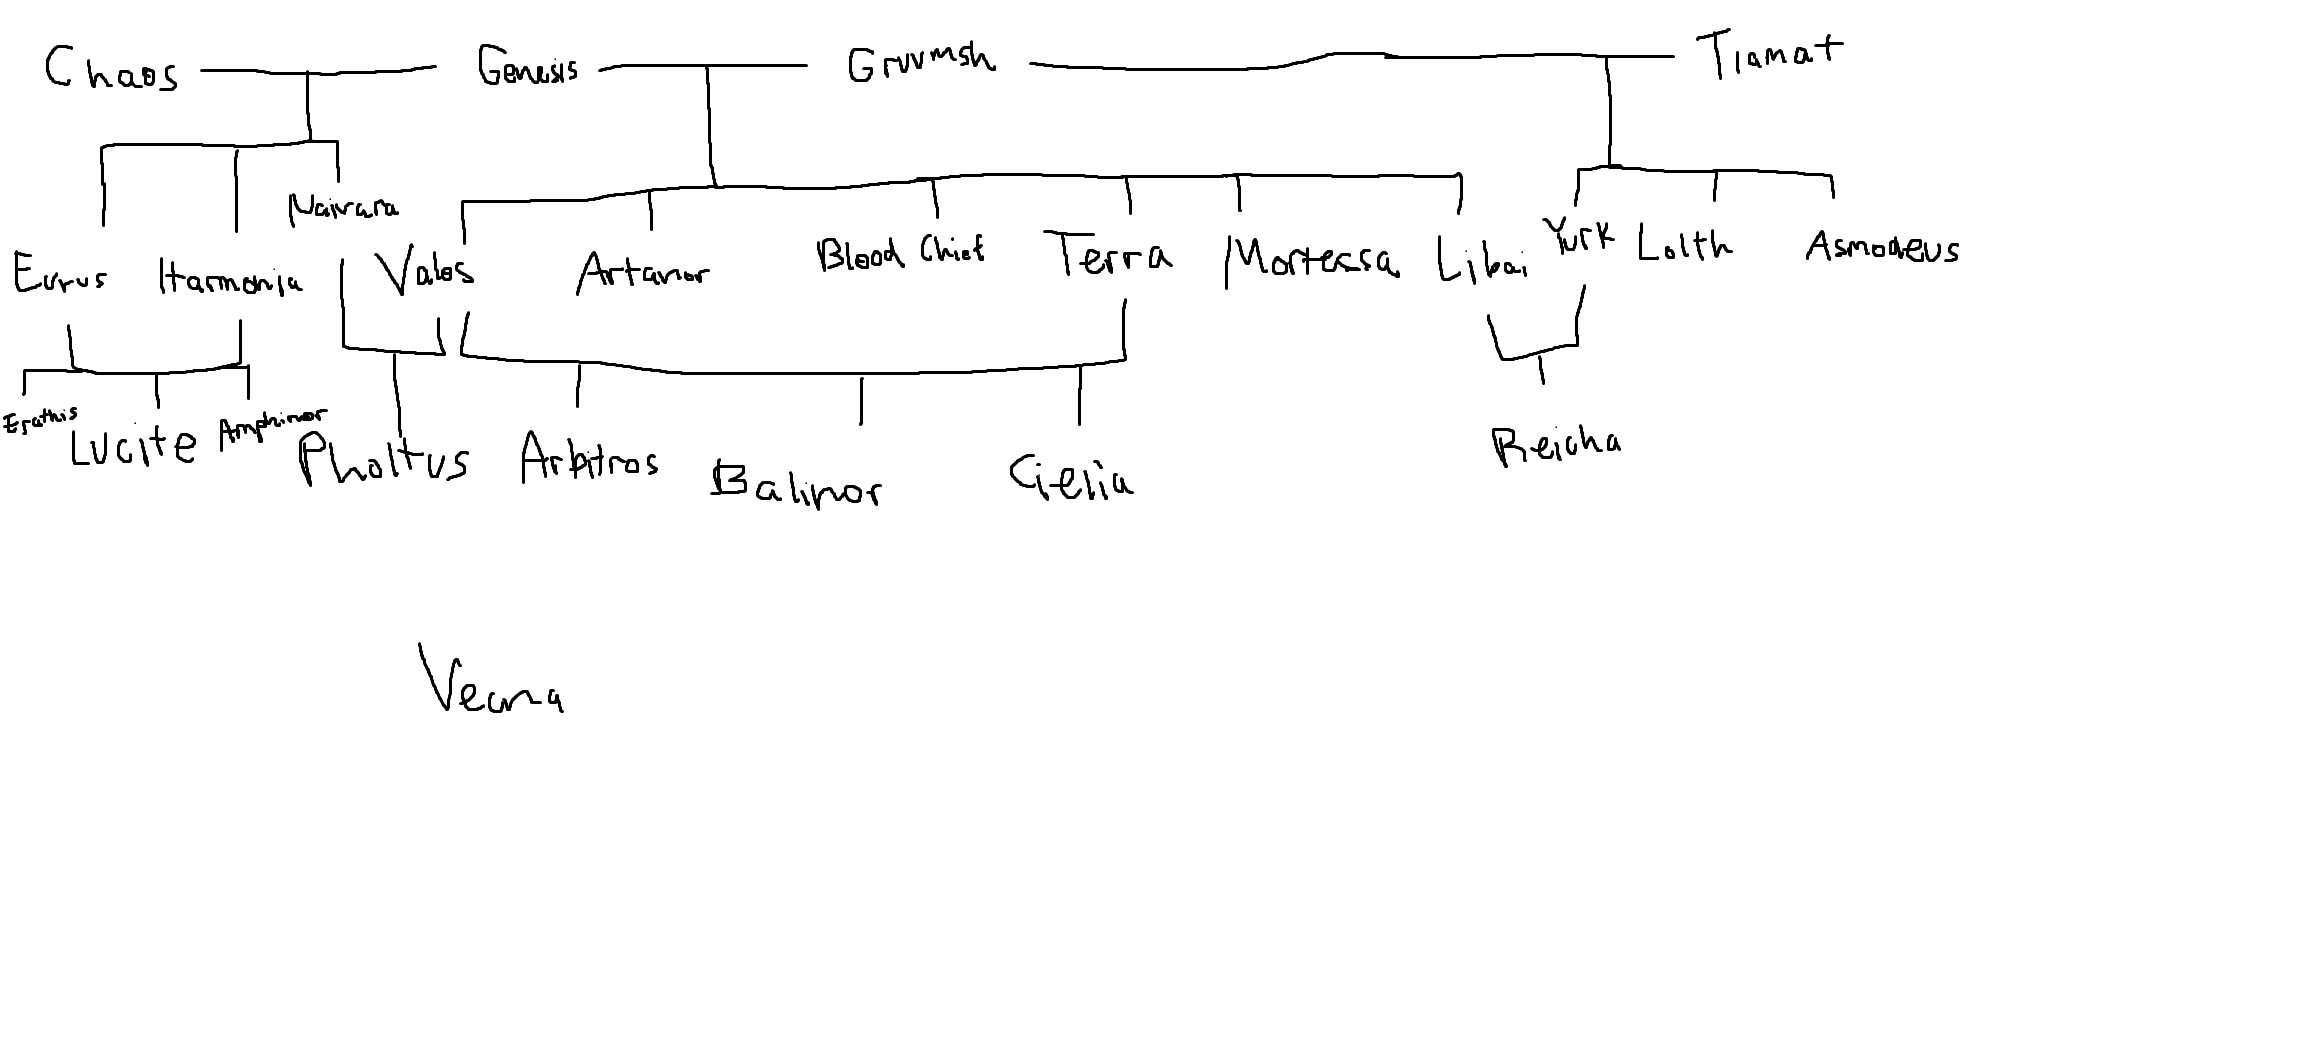 Chaos Genesis Gruumsh Tiamat
Naivara
Eurus Harmonia Valos Artanor Blood Chief Terra Mortessa Libai Yurk Lolth Asmodeus
Erathis Lucite Amphinor Pholtus Arbitros Balinor Celia Reicha
Vecna